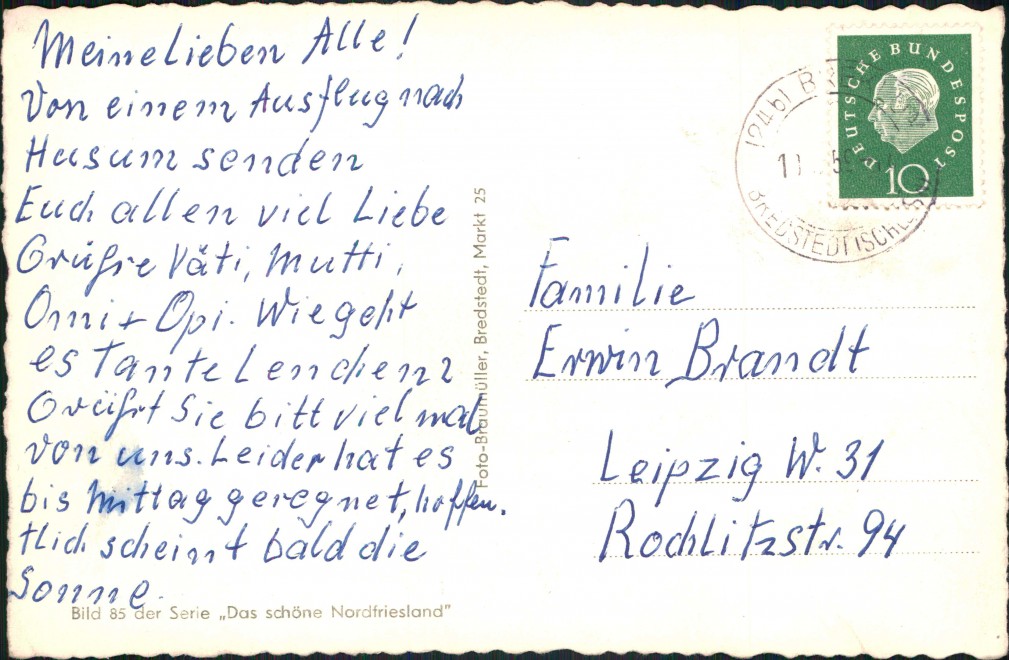 Meine Lieben Alle!
Von einem Ausflug nach
Husum senden
Euch allen viel Liebe
Grüße Väti, Mutti,
Omi + Opi. Wie geht
es Tante Lenchen?
Grüßt Sie bitt viel mal
von uns. Leider hat es
bis Mittag geregnet, hoffen.
tlich scheint bald die
Sonne.
Bild 85 der Serie „Das schöne Nordfriesland"
Foto-Braumüller, Bredstedt, Markt 25
DEUTSCHE BUNDESPOST
10
(24b) BRED
BREDSTEDT (SCHLESW
Familie
Erwin Brandt
Leipzig W. 31
Rochlitzstr. 94